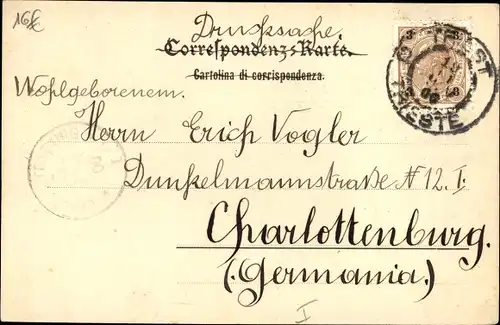 Drucksache.
Correspondenz-Karte.
Cartolina di corrispondenza.
Wohlgeborenem.
Herrn Erich Vogler
Dunkelmannstraße N 12. I.
Charlottenburg.
(Germania.)
I
TRIESTE
3